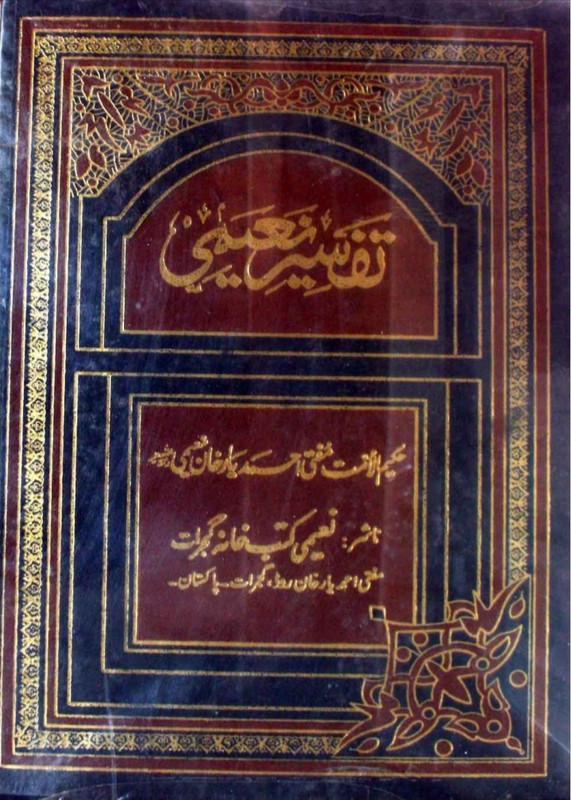 تفسیر نعیمی
حکیم الامت مفتی احمد یار خان نعیمی
ناشر: نعیمی کتب خانہ گجرات
مفتی احمد یار خان روڈ، گجرات۔ پاکستان۔